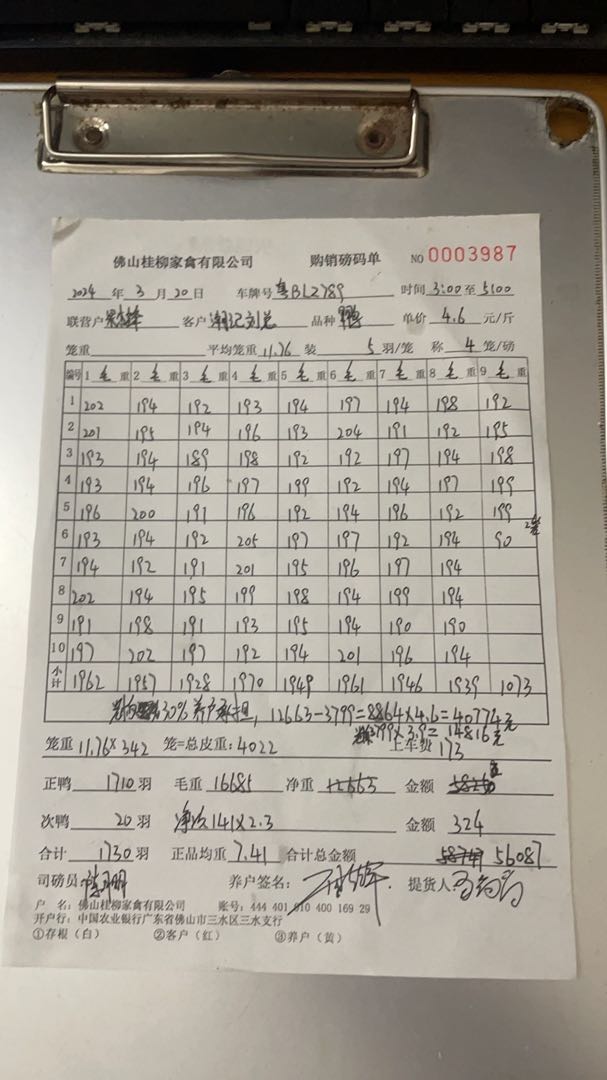 佛山桂柳家禽有限公司 购销磅码单 NO 0003987
2024 年 3 月 20 日 车牌号 粤BL2789 时间 3:00 至 5:00
联营户 客户 品种 鸭 单价 4.6 元/斤
笼重 平均笼重 11.76 装 5 羽/笼 称 4 笼/磅
编号 1 毛 重 2 毛 重 3 毛 重 4 毛 重 5 毛 重 6 毛 重 7 毛 重 8 毛 重 9 毛 重
1 202 194 192 193 194 197 194 198 192
2 201 195 194 196 193 204 191 192 195
3 193 194 189 198 192 192 197 194 198
4 193 194 196 197 199 192 194 197 199
5 196 200 191 196 192 194 196 192 199
6 193 194 192 205 197 197 192 194 90 2笼
7 194 192 191 201 195 196 197 194
8 202 194 195 199 198 194 199 194
9 191 198 191 193 195 194 190 190
10 197 202 197 192 194 201 196 194
小计 1962 1957 1928 1970 1949 1961 1946 1939 1073
30% 养户承担, 12663-3799=8864×4.6=40774元
3799×3.9=14816元
笼重 11.76×342 笼=总皮重: 4022 上车费 173
正鸭 1710 羽 毛重 16685 净重 12663 金额
次鸭 20 羽 净次141×2.3 金额 324
合计 1730 羽 正品均重 7.41 合计总金额 56087
司磅员 养户签名: 提货人
户 名: 佛山桂柳家禽有限公司 账号: 444 401 010 400 169 29
开户行: 中国农业银行广东省佛山市三水区三水支行
①存根(白) ②客户(红) ③养户(黄)